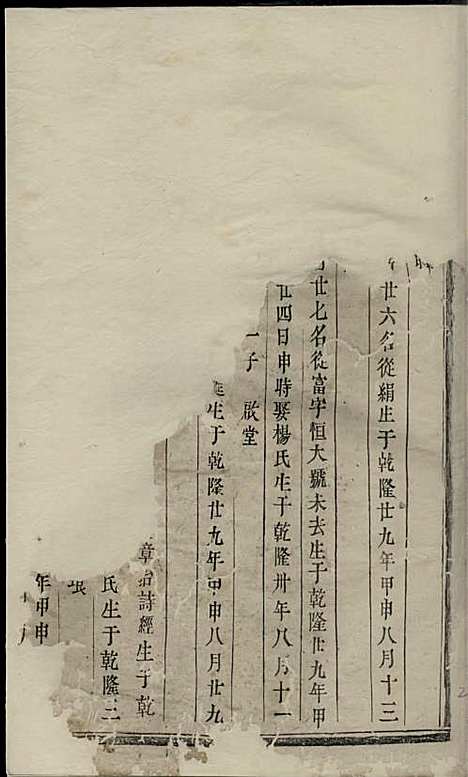 廿六名從絹生于乾隆廿九年甲申八月十三
廿七名從富字恒大號未去生于乾隆廿九年甲
廿四日申時娶楊氏生于乾隆卅年八月十一
一子 啟堂
生于乾隆廿九年甲申八月廿九
章治詩經生于乾
氏生于乾隆三
珢
年甲申